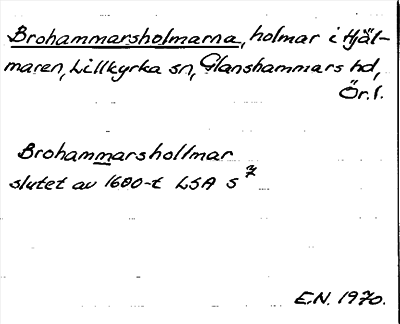 Brohammarsholmarna, holmar i Hjäl-
maren, Lillkyrka sn, Glanshammars hd,
Ör.l.
Brohammarshollmar
slutet av 1600-t LSA S 7
E.N. 1970.